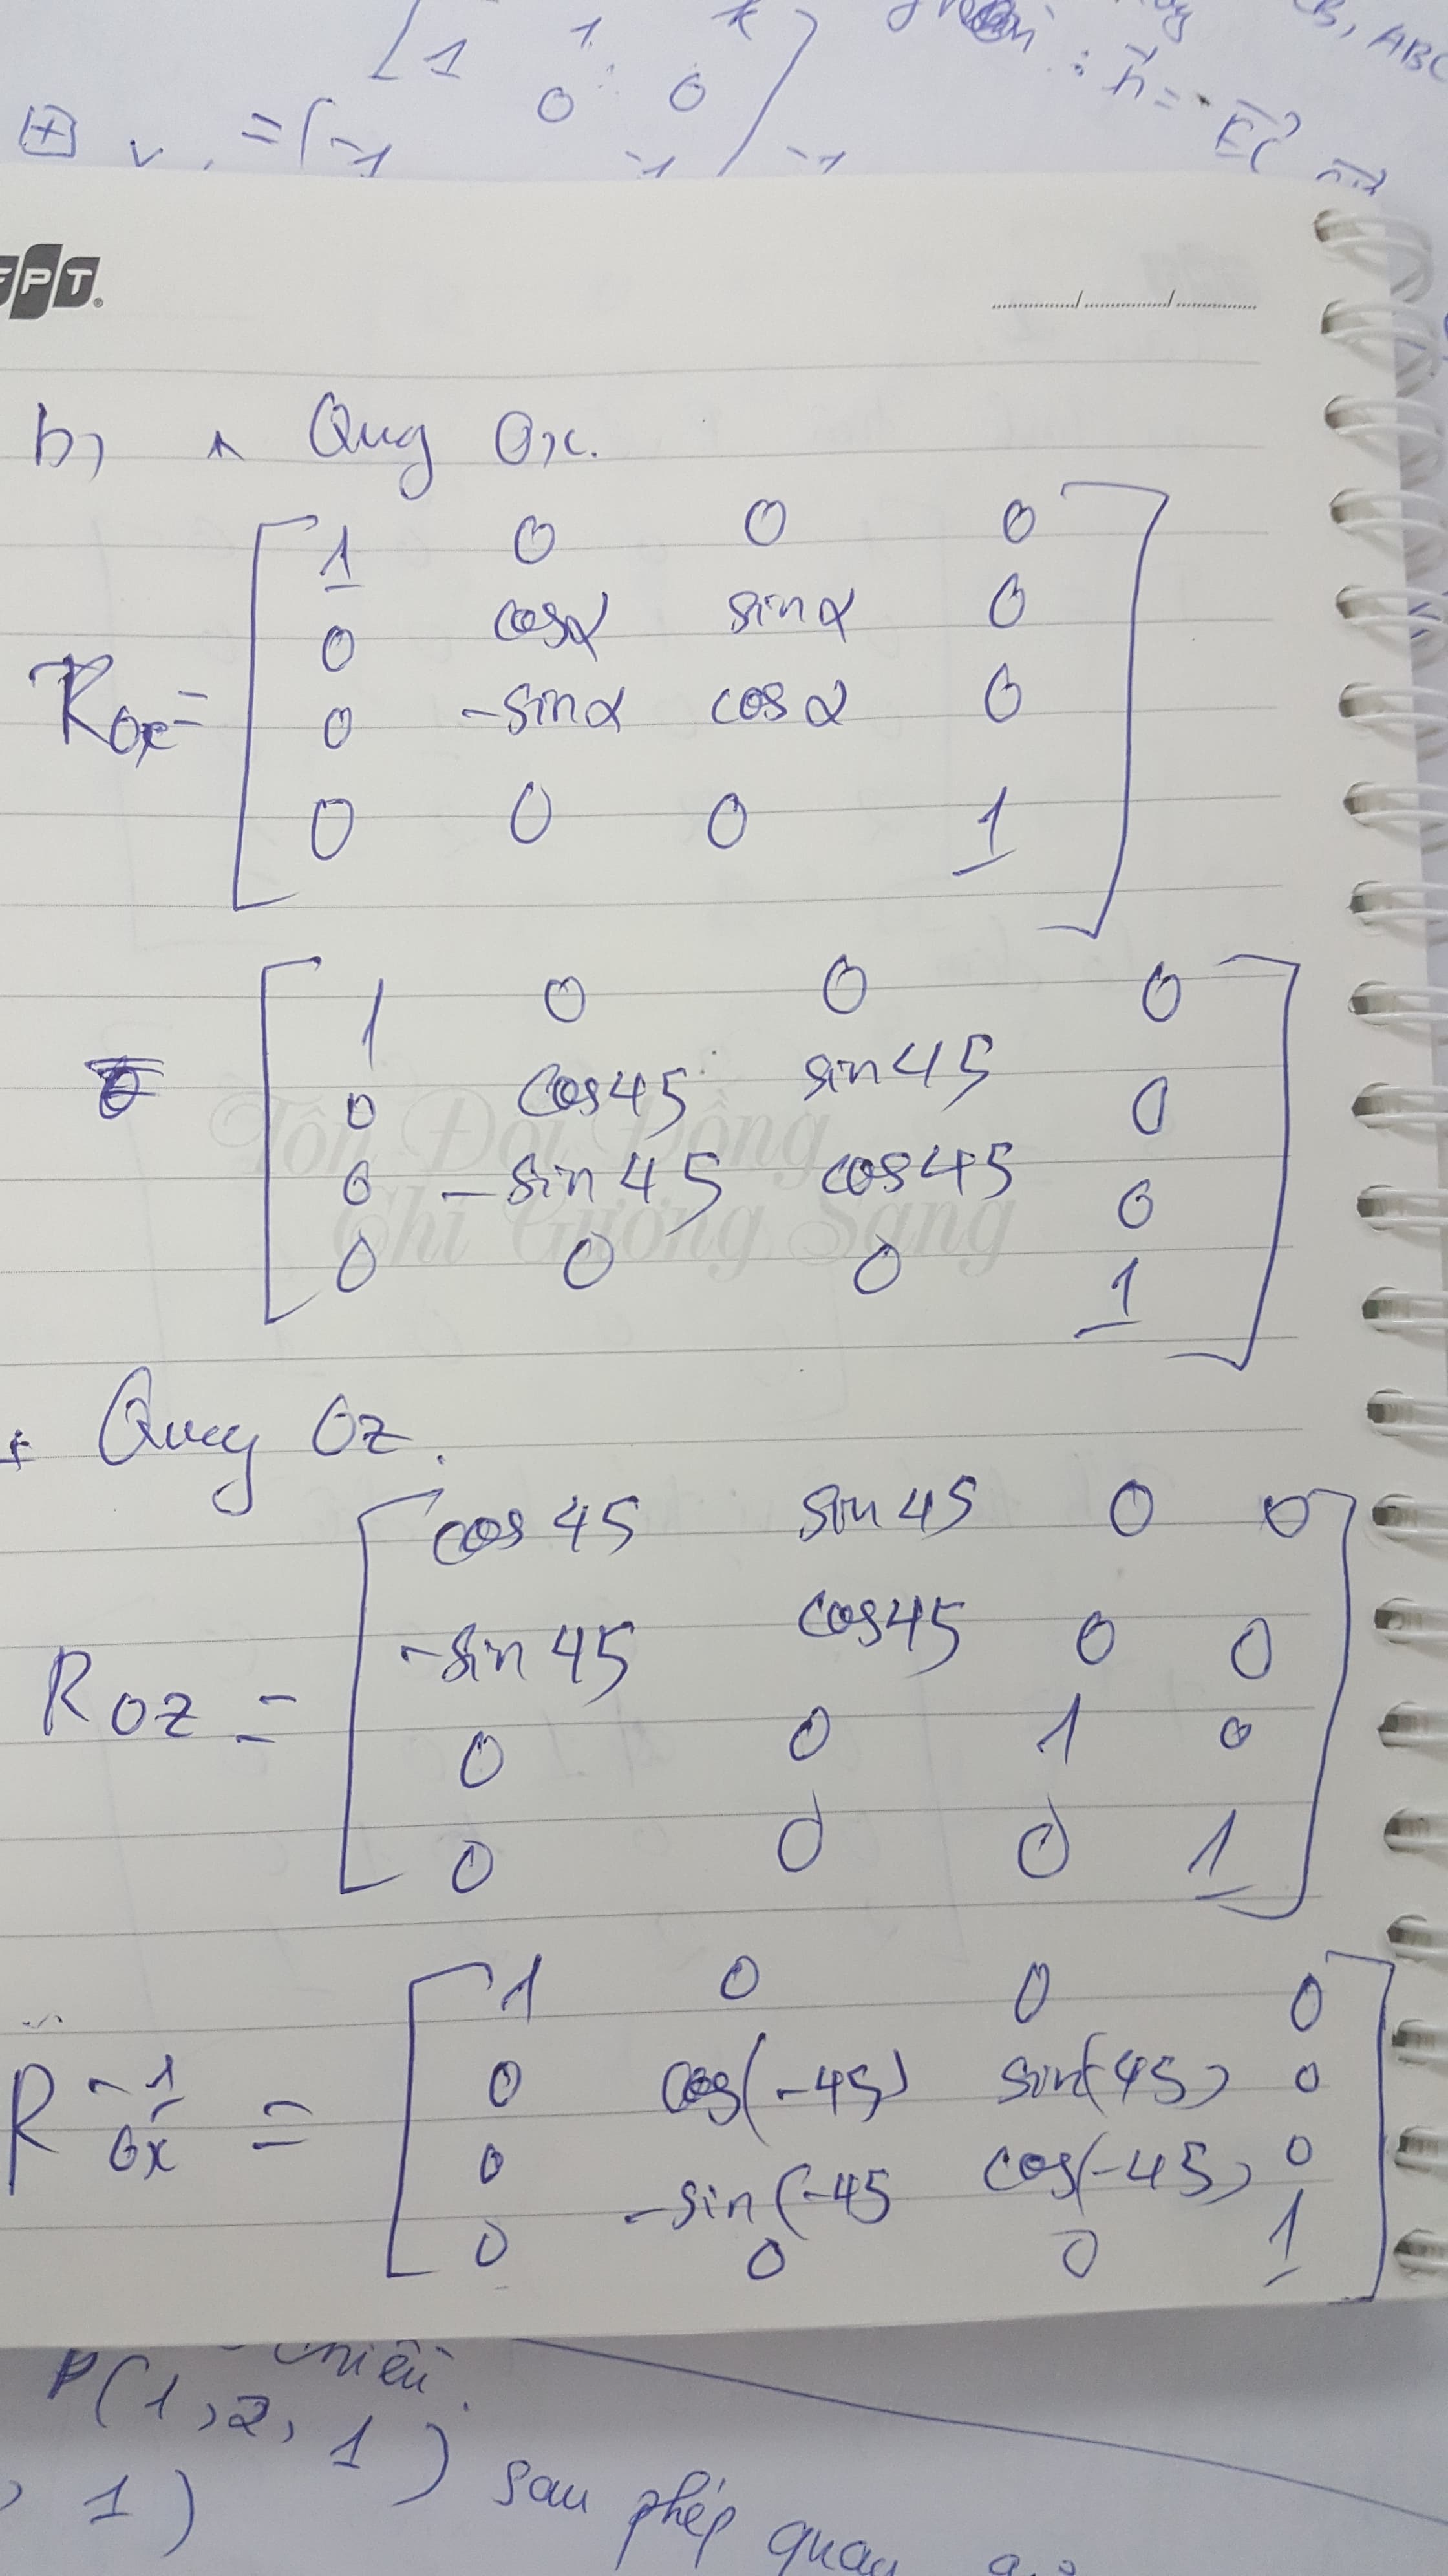 [1 1
0 0
⊞ v = [-1 -1 -1
: n⃗ =
CB, ABC
FPT
b) Quay Ox.
1 0 0 0
0 cosα sinα 0
R0x= 0 -sinα cosα 0
0 0 0 1
1 0 0 0
0 cos45 sin45 0
0 -sin45 cos45 0
0 0 0 1
Tôn Đổi Đồng
Chí Gương Sáng
+ Quay Oz.
cos45 sin45 0 0
-sin45 cos45 0 0
ROZ = 0 0 1 0
0 0 0 1
1 0 0 0
0 cos(-45) sin(-45) 0
R -1 0x = 0 -sin(-45 cos(-45) 0
0 0 0 1
P(1,2,1) sau phép quay
, 1)